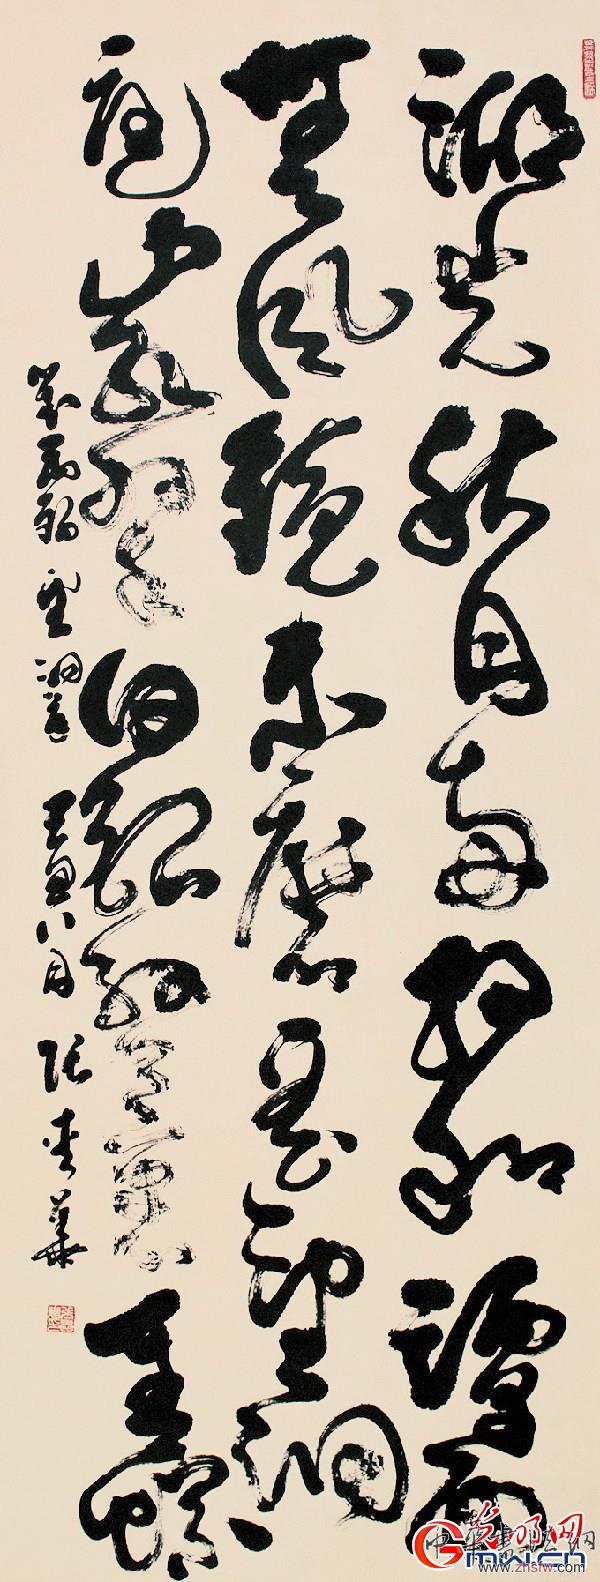 湖光秋月兩相和潭面
無風鏡未磨遥望洞
庭山水翠白銀盤裏一青螺
劉禹錫望洞庭 八月 張 華
光明网
GMW.cn
www.zhsfw.com